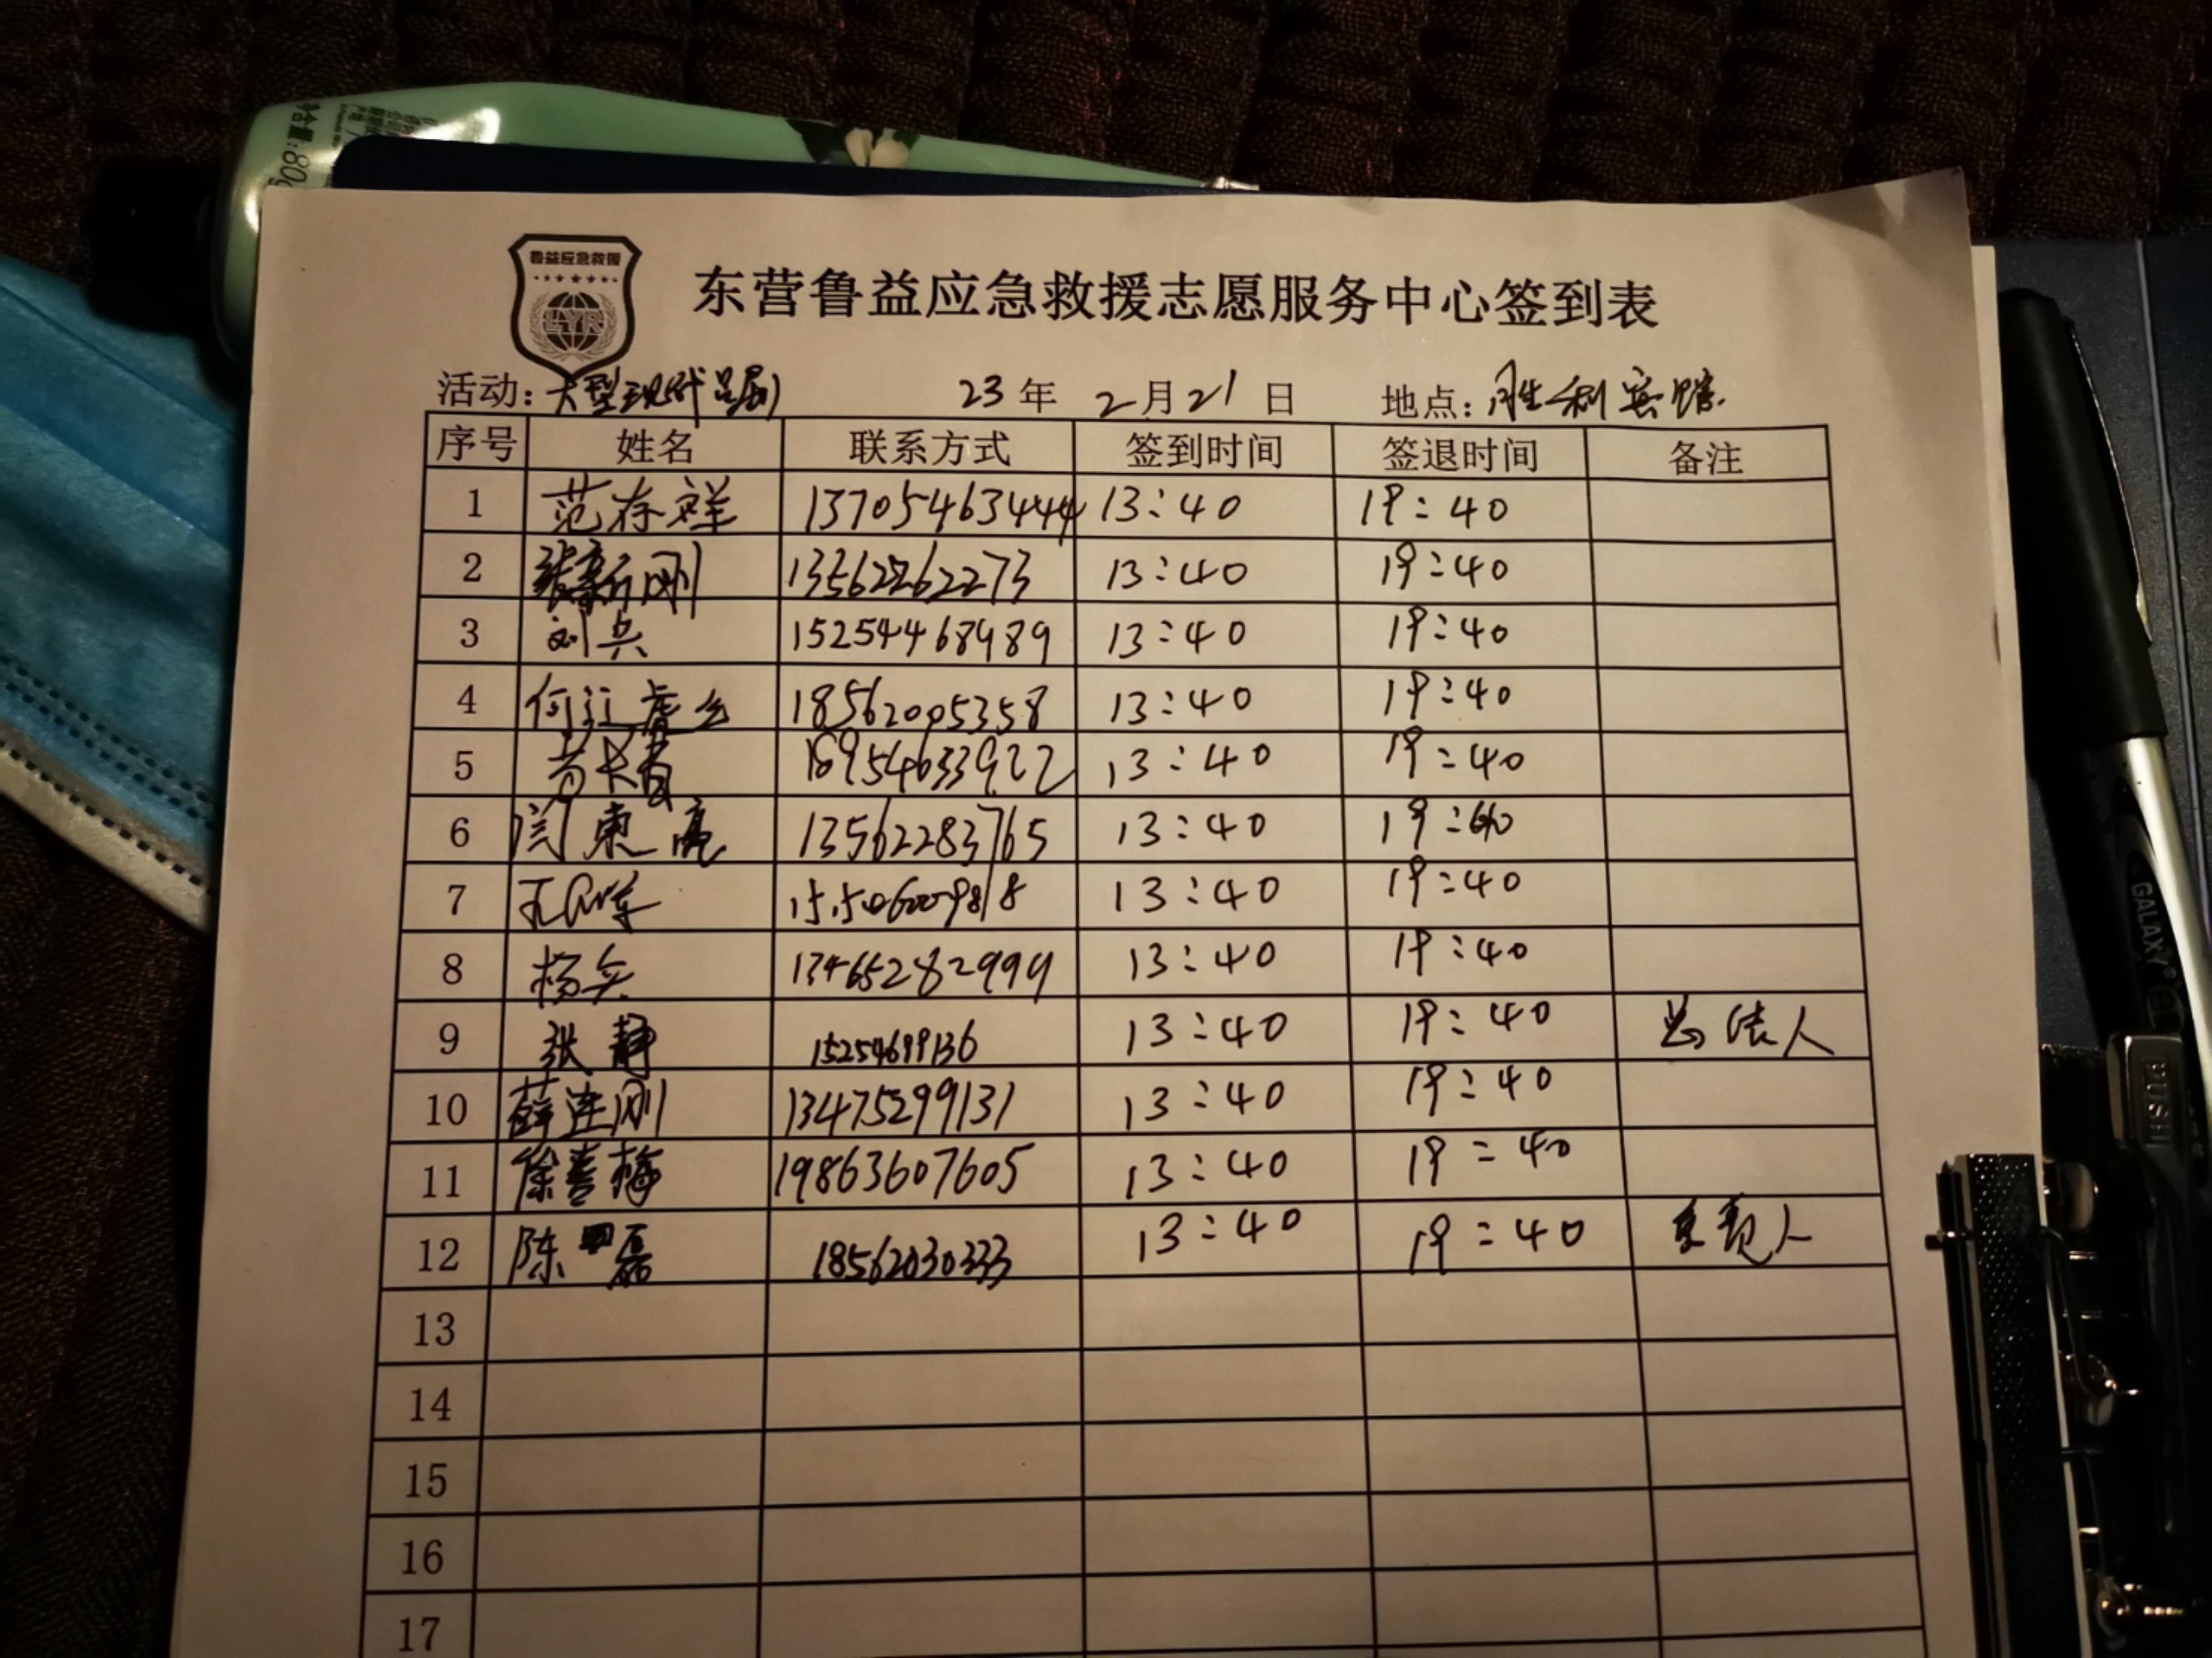 净含量:80g
鲁益应急救援
LYR
东营鲁益应急救援志愿服务中心签到表
活动: 大型现代吕剧 23 年 2 月 21 日 地点: 胜利宾馆
序号 姓名 联系方式 签到时间 签退时间 备注
1 范存祥 13705463444 13:40 19:40
2 张新刚 13562262273 13:40 19:40
3 刘兵 15254468989 13:40 19:40
4 18562005358 13:40 19:40
5 18954633922 13:40 19:40
6 闫东亮 13562283765 13:40 19:40
7 13:40 19:40
8 13465282999 13:40 19:40
9 张静 15254699136 13:40 19:40 法人
10 薛连刚 13475299131 13:40 19:40
11 徐善梅 19863607605 13:40 19:40
12 陈磊 18562030333 13:40 19:40 负责人
13
14
15
16
17
GALAXY
PUSH